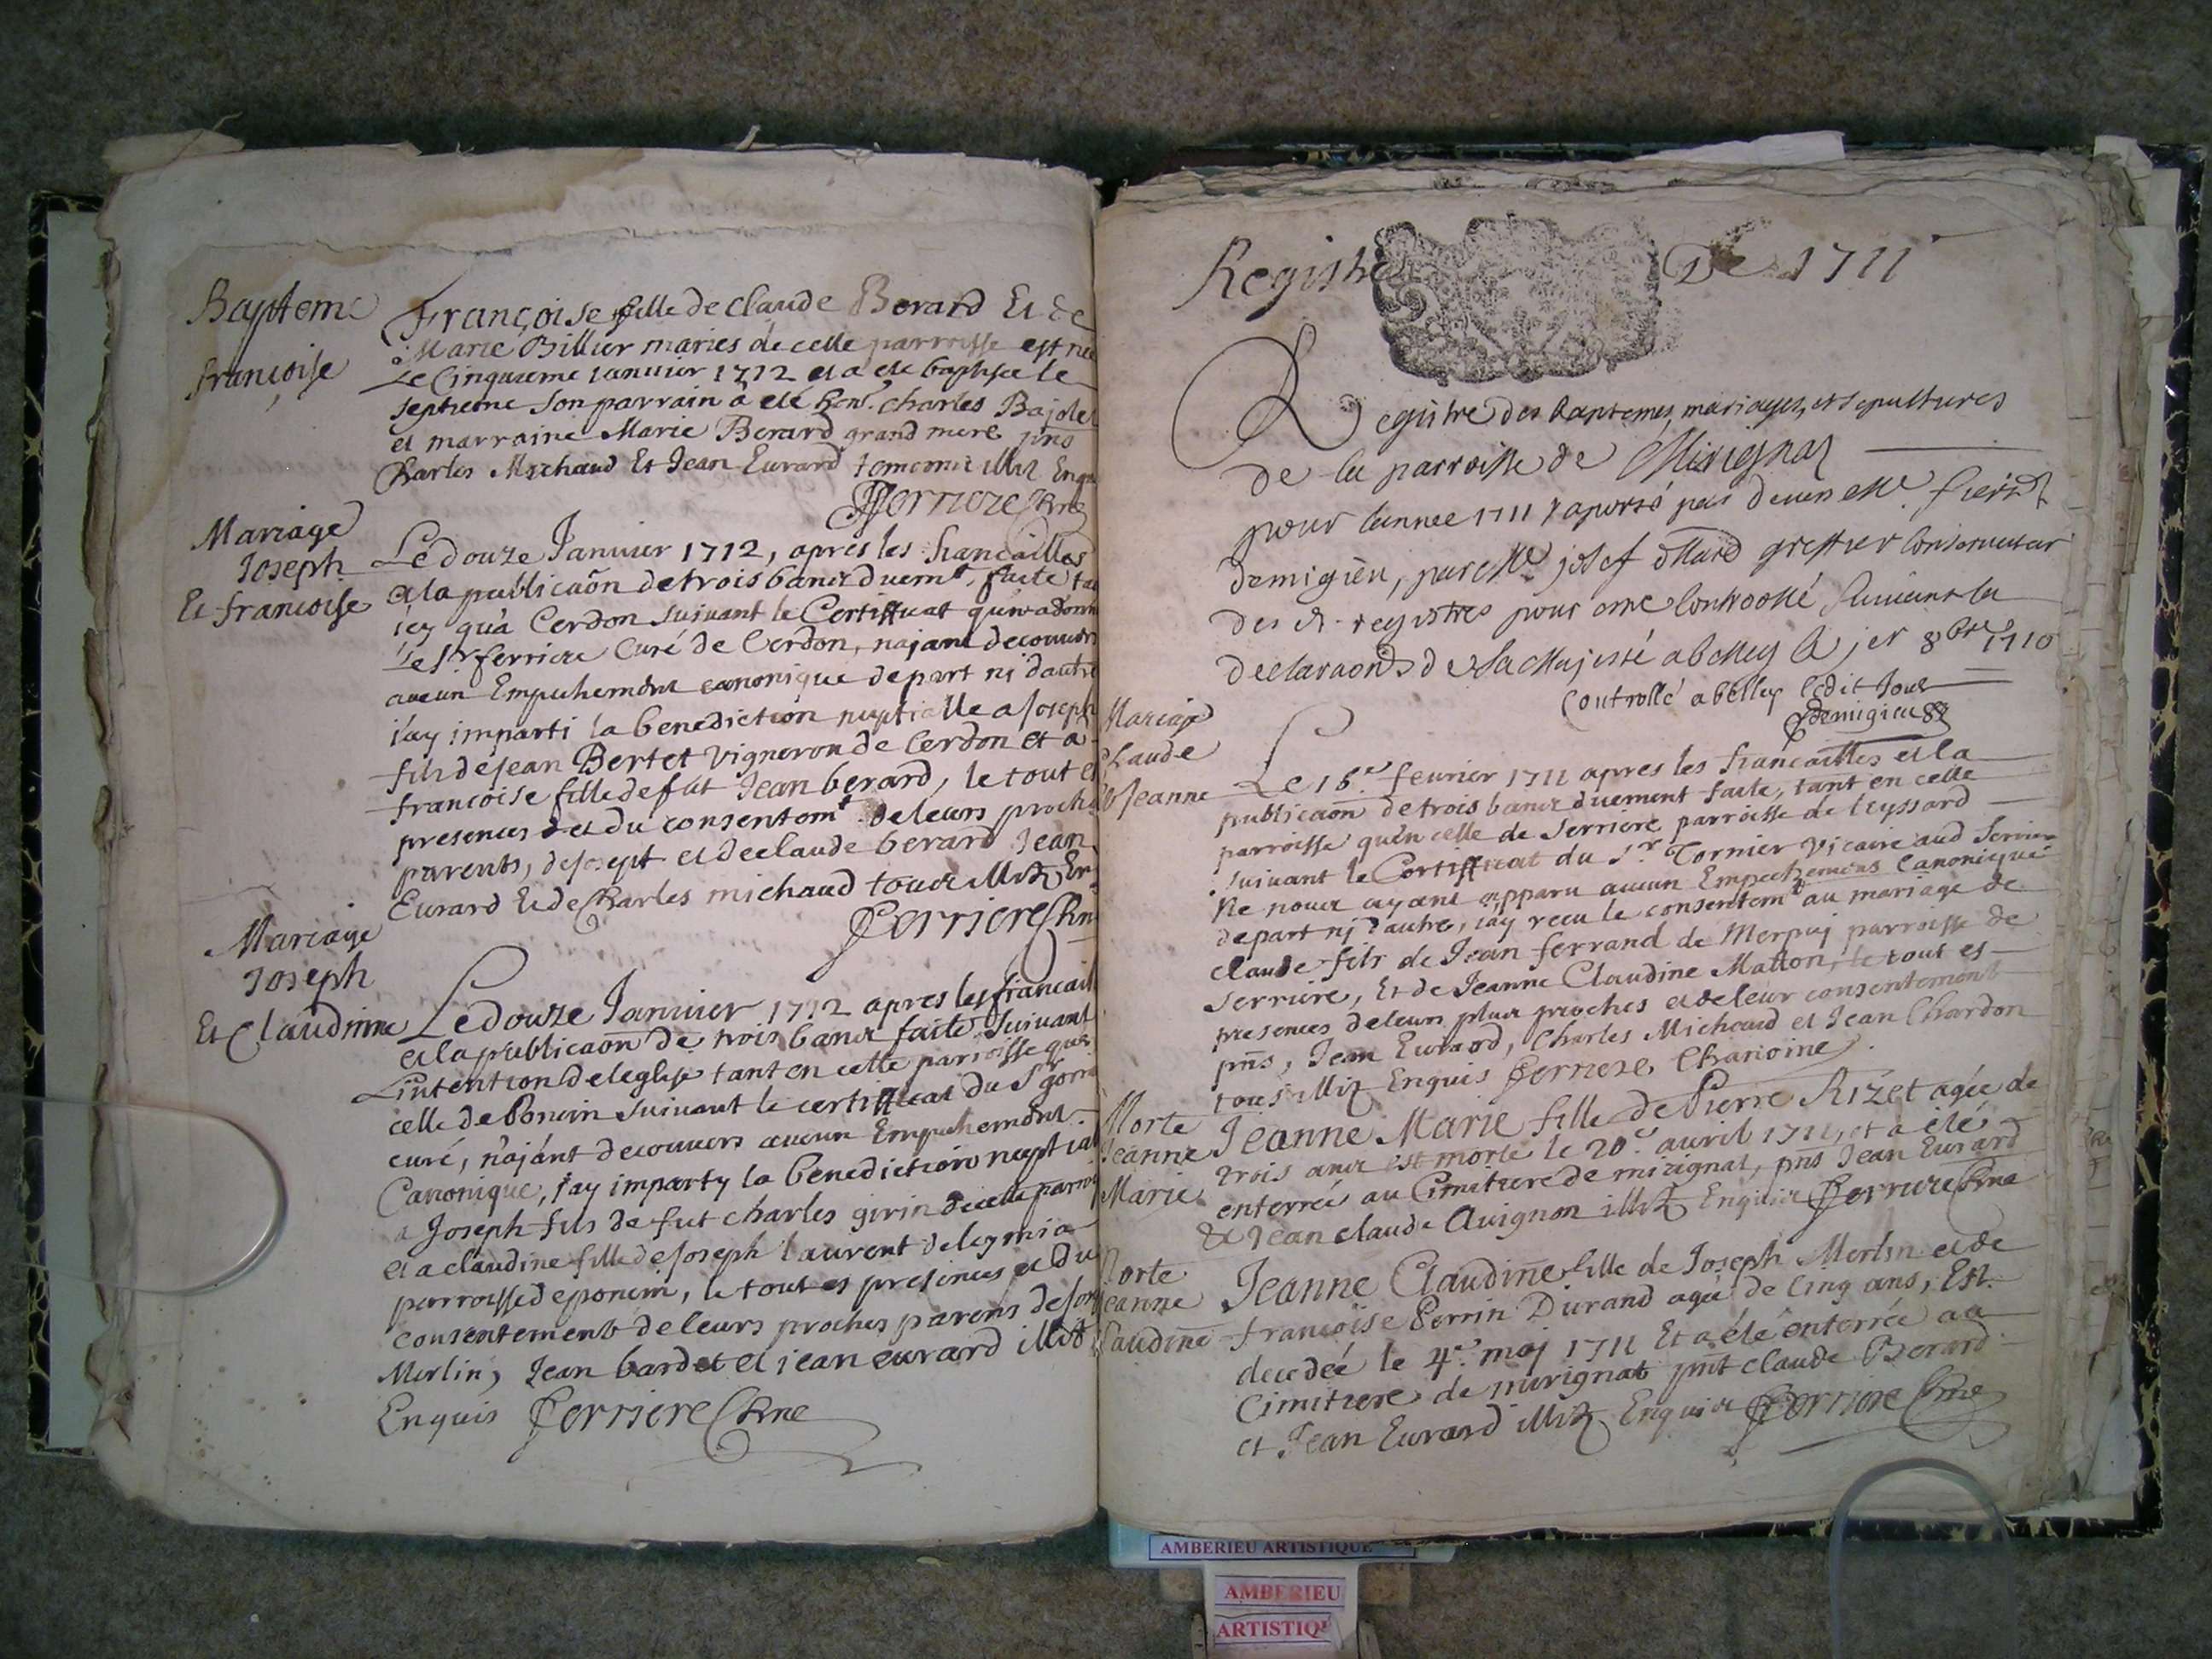 Bapteme
françoise
Françoise fille de claude Berard Et de
Marie Billier mariés de cette parroisse est née
Le Cinquieme Ianuier 1712 et a eté baptisée le
septieme son parrain a eté hon. Charles Bajolet
et marraine Marie Berard grand mere pns
Charles Michaud Et Jean Eurard illit Enqu
Ferriere Chne
Mariage
Joseph
Et francoise
Le douze Januier 1712, apres les fiancailles
et la publicaõn de trois bancz duemt. faite ta
icy qu'à Cerdon suiuant le Certifficat qu'en a donné
Le Sr ferriere Curé de Cerdon, najant decouuers
aucun Empechement canonique depart nj dautre
i'ay imparti la benediction nuptialle a Joseph
fils de jean Bertet vigneron de Cerdon et a
francoise fille de fut Jean berard, le tout es
presences et du consentemt. de leurs proche
parents, de josept et de claude berard Jean
Eurard Et de Charles michaud touz illitz En
Ferriere Chn
Mariage
Joseph
Et Claudine
Le douze Januier 1712 apres les fiancaill
et la publicaõn de trois bancz faite suiuant
L'intention de leglise tant en cette parroisse que
celle de Poncin suiuant le certifficat du Sr
curé, n'ajánt decouuers aucun Empechement
Canonique, j'ay imparty la benediction nuptial
a Joseph fils de fut charles girin de cette parroi
et a claudine fille de Joseph laurent de leymia
parroisse de poncin, le tout es presences et du
consentement de leurs proches parens de Jos
Merlin, Jean bardet et jean eurard illit
Enquis Ferriere Chne
Registre De 1711
Registre des baptemes, mariages, et sepultures
de la parroisse de Mirignaz
pour lannee 1711 par deuen Me.
demigieu, par Me josef ollard greffier Conseruateur
des d. registres pour etre Controollé suiuant la
declaraons de sa Majesté a belley le jer 8bre 1710
Controllé a belley ledit Jour
Demigieu
Mariage
Claude
Et Jeanne
Le 16e. feurier 1711 apres les fiancailles et la
publicaõn de trois bancz duement faite, tant en cette
parroisse qu'en celle de Serriere parroisse de leyssard
suiuant le Certifficat du Sr. Tornier Vicaire aud Serriere
Ne nouz ayant apparu aucun Empechemens Canonique
depart nj d'autre, i'ay recu le consentemt au mariage de
claude fils de Jean ferrand de Merpuj parroisse de
Serriere, Et de Jeanne Claudine Matton, le tout es
presences de leurs plus proches et de leur consentement
pns, Jean Eurard, Charles Michaud et Jean Chardon
tous illitz Enquis Ferriere, Chanoine.
Morte
Jeanne
Marie
Jeanne Marie fille de Pierre Rizet agée de
trois ancz est morte le 20e. auril 1711, et a eté
enterrée au Cimitiere de mirignat, pns Jean Eurard
& Jean claude Auignon illitz Enquiz Ferriere Chne
Morte
Jeanne
Claudine
Jeanne Claudine fille de Joseph Merlin et de
francoise Perrin Durand agée de Cinq ans, Est
decedée le 4e. maj 1711 Et a été enterrée au
Cimitiere de mirignat pnt claude Berard
et Jean Eurard illitz Enquiz Ferriere Chne
AMBERIEU ARTISTIQUE
AMBERIEU
ARTISTIQU